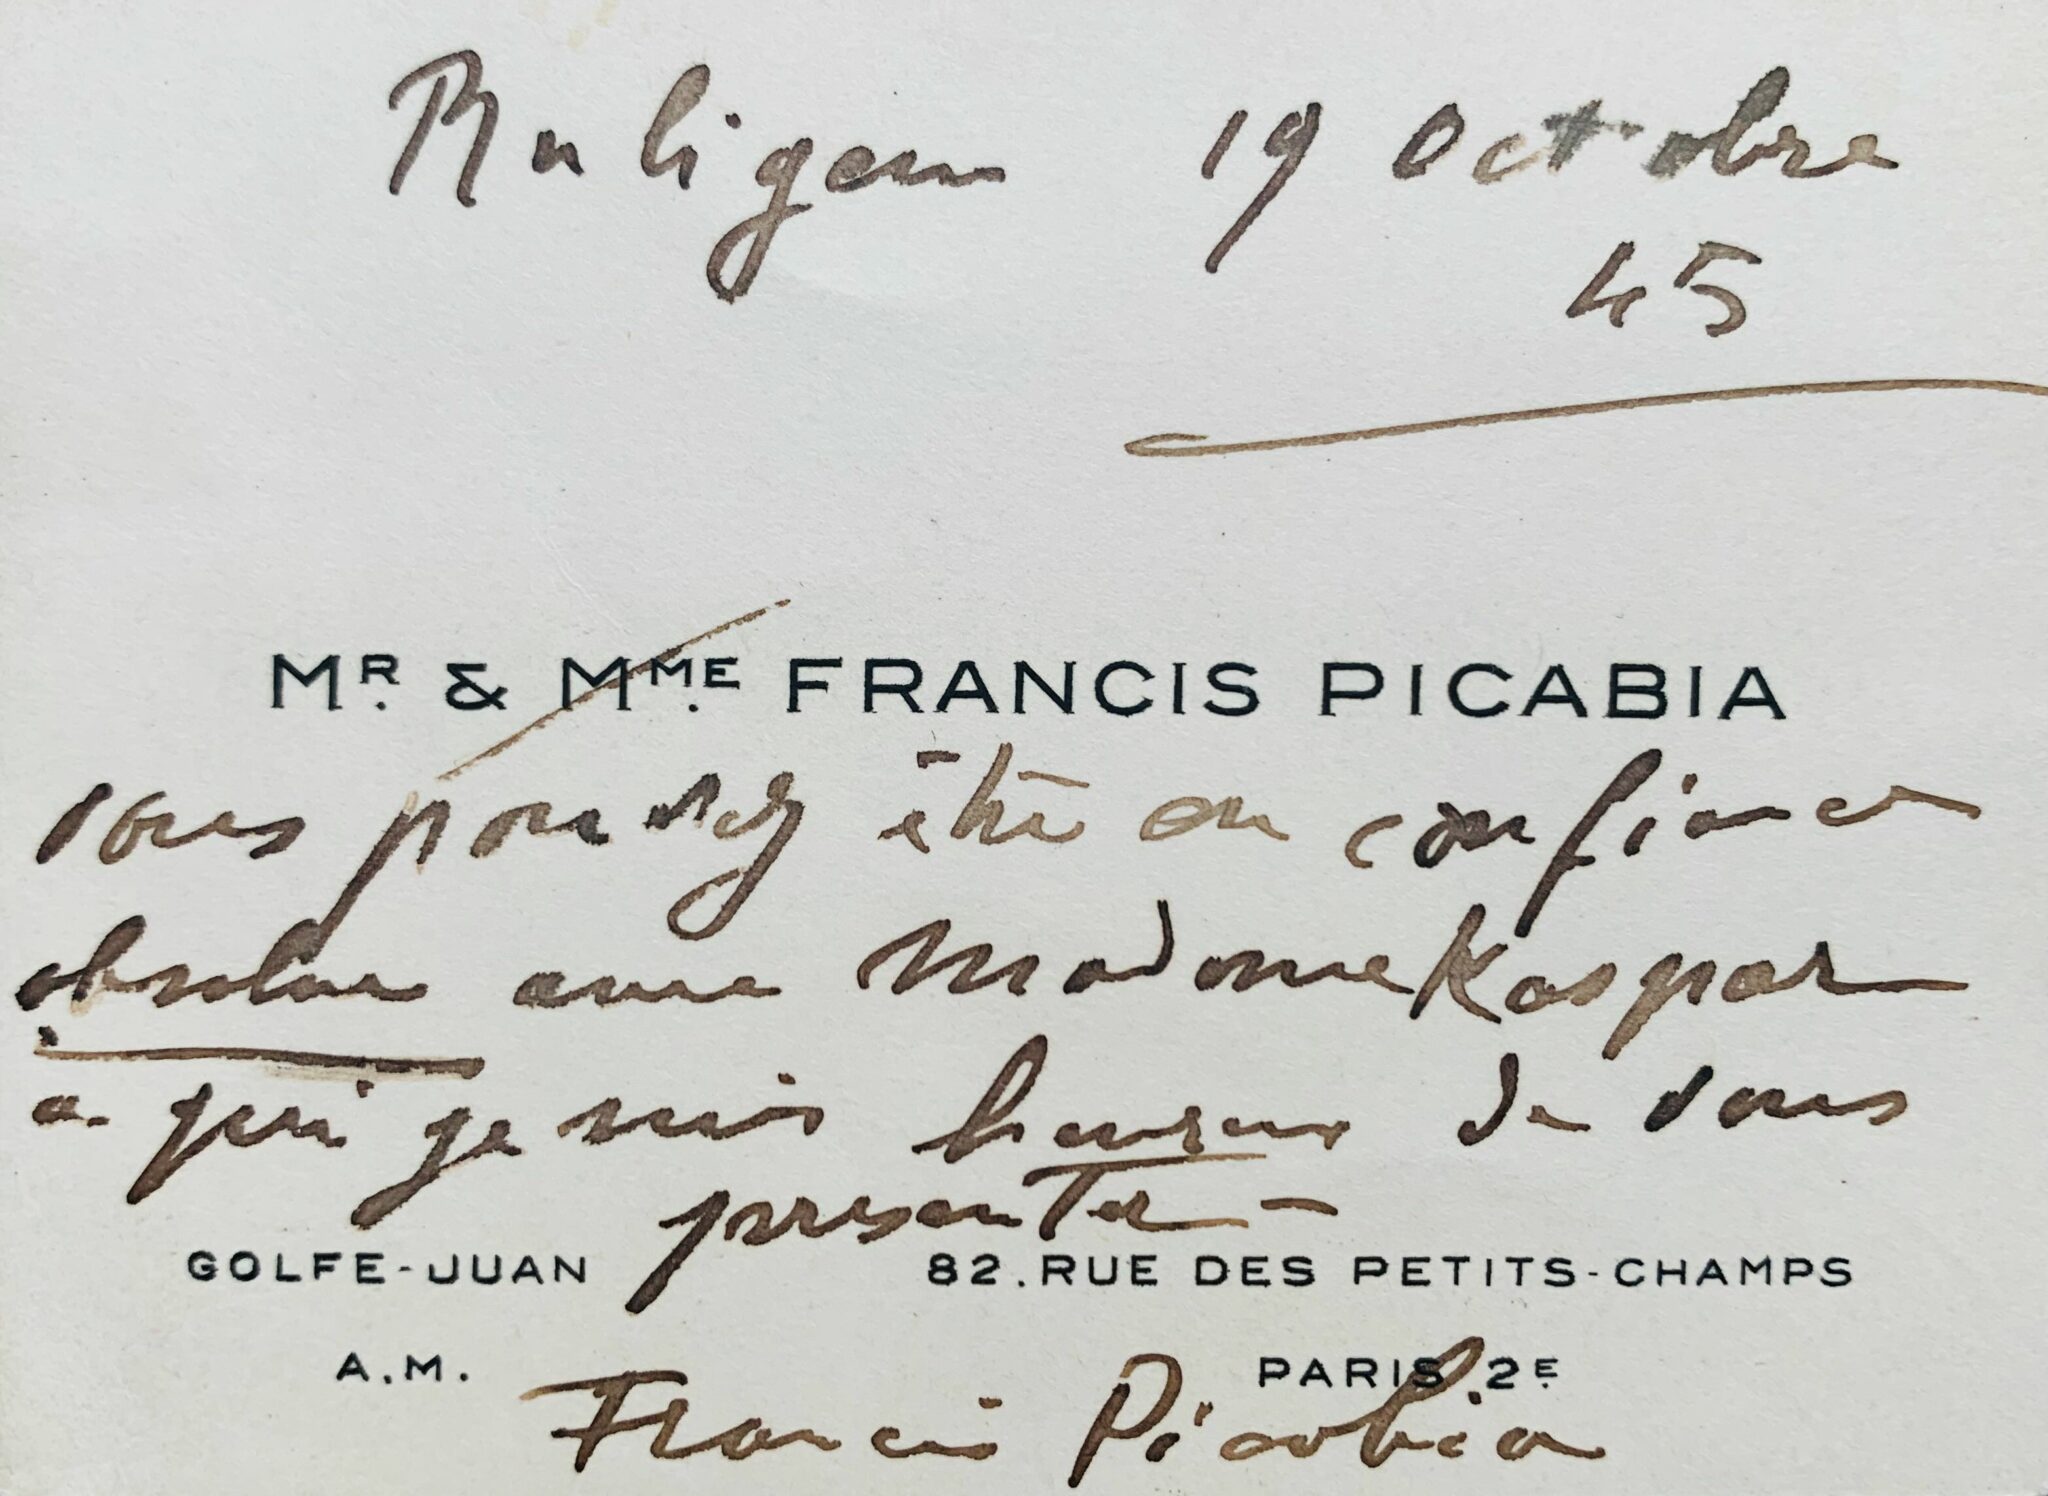 Rubigen 19 Octobre
45
MR. & MME. FRANCIS PICABIA
vous pouvez être en confiance
absolue avec Madame Kaspar
a qui je suis heureux de vous
presenter -
GOLFE-JUAN 82. RUE DES PETITS-CHAMPS
A.M. PARIS 2E.
Francis Picabia